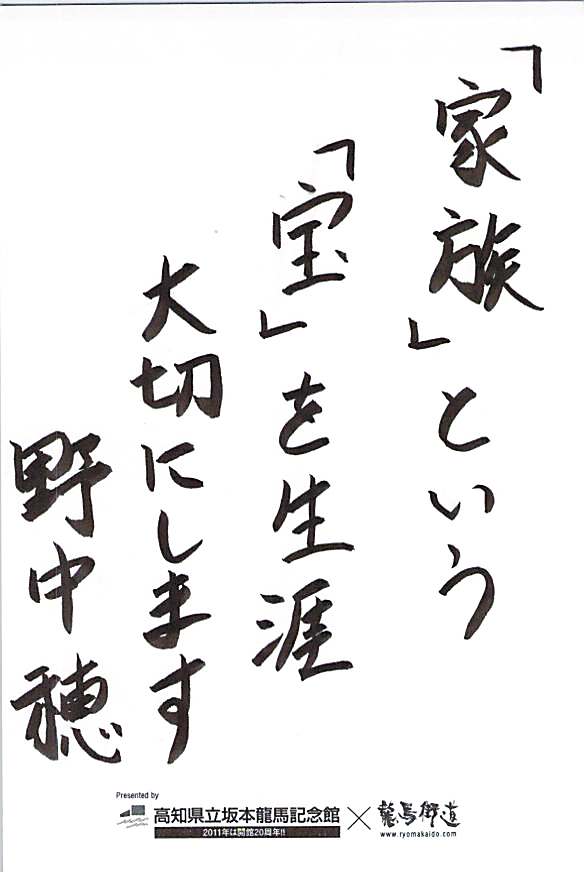 「家族」という
「宝」を生涯
大切にします
野中穂
Presented by
高知県立坂本龍馬記念館
2011年は開館20周年!!
×
龍馬街道
www.ryomakaido.com